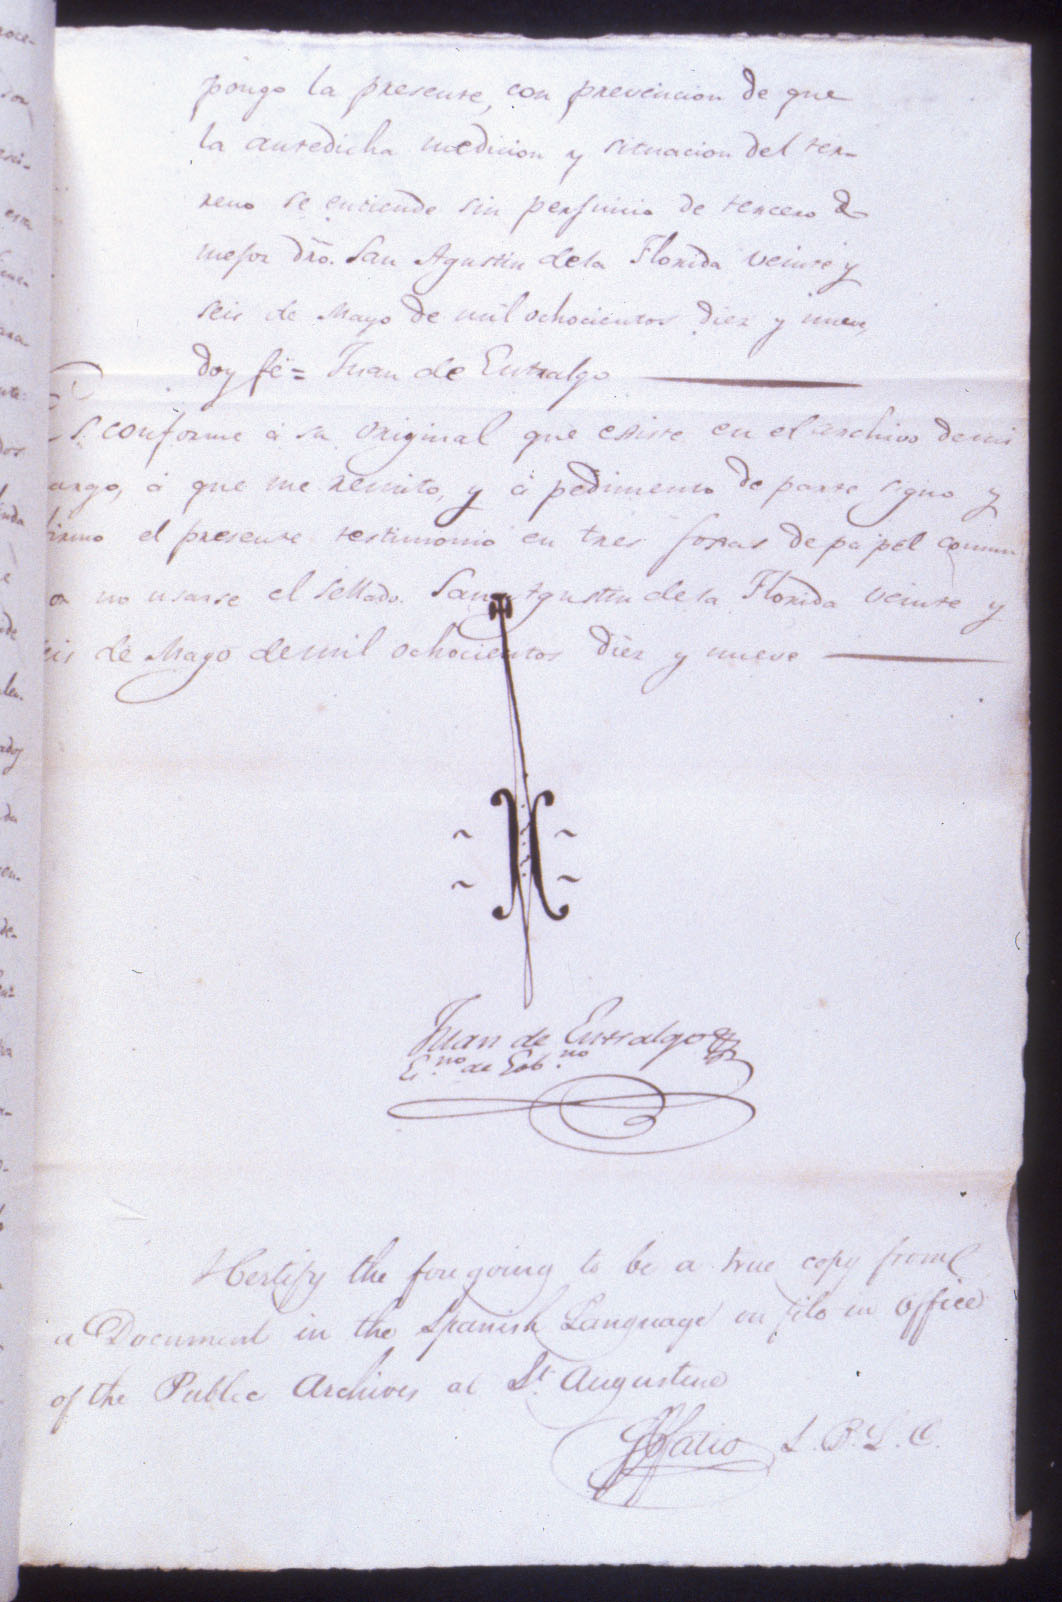 pongo la presente, con prevencion de que
la antedicha medicion y situacion del ter-
reno se entiende sin perjuicio de tercero de
mejor dro. San Agustin de la Florida veinte y
seis de Mayo de mil ochocientos diez y nueve,
doy fé = Juan de Entralgo
Es conforme á su original que existe en el archivo de mi
argo, á que me remito, y á pedimento de parte signo y
firmo el presente testimonio en tres foxas de papel comun
or no usarse el sellado. San Agustin de la Florida veinte y
eis de Mayo de mil ochocientos diez y nueve
Juan de Entralgo
E.no de Gob.no
I Certify the foregoing to be a true copy from
a Document in the Spanish Language on file in office
of the Public Archives at St. Augustine
FJFatio L. P. L. C.